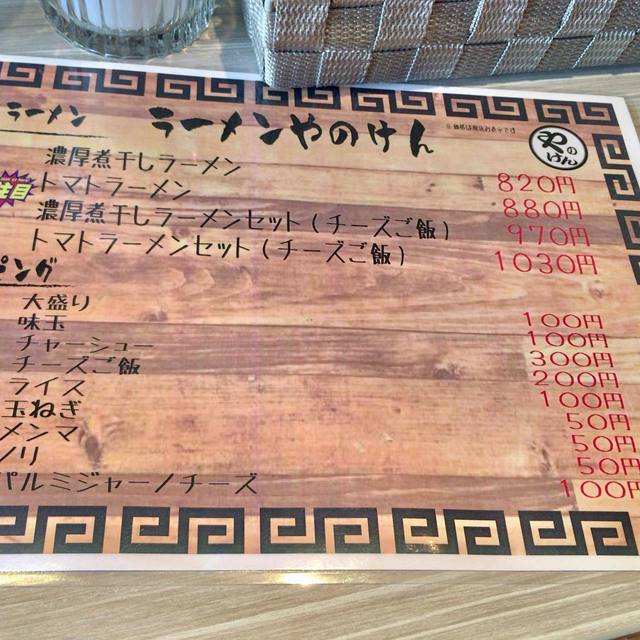 ラーメン ラーメンやのけん ※価格は税込お表示です
やのけん
濃厚煮干しラーメン 820円
注目 トマトラーメン 880円
濃厚煮干しラーメンセット(チーズご飯) 970円
トマトラーメンセット(チーズご飯) 1030円
ピング
大盛り 100円
味玉 100円
チャーシュー 300円
チーズご飯 200円
ライス 100円
玉ねぎ 50円
メンマ 50円
ノリ 50円
パルミジャーノチーズ 100円